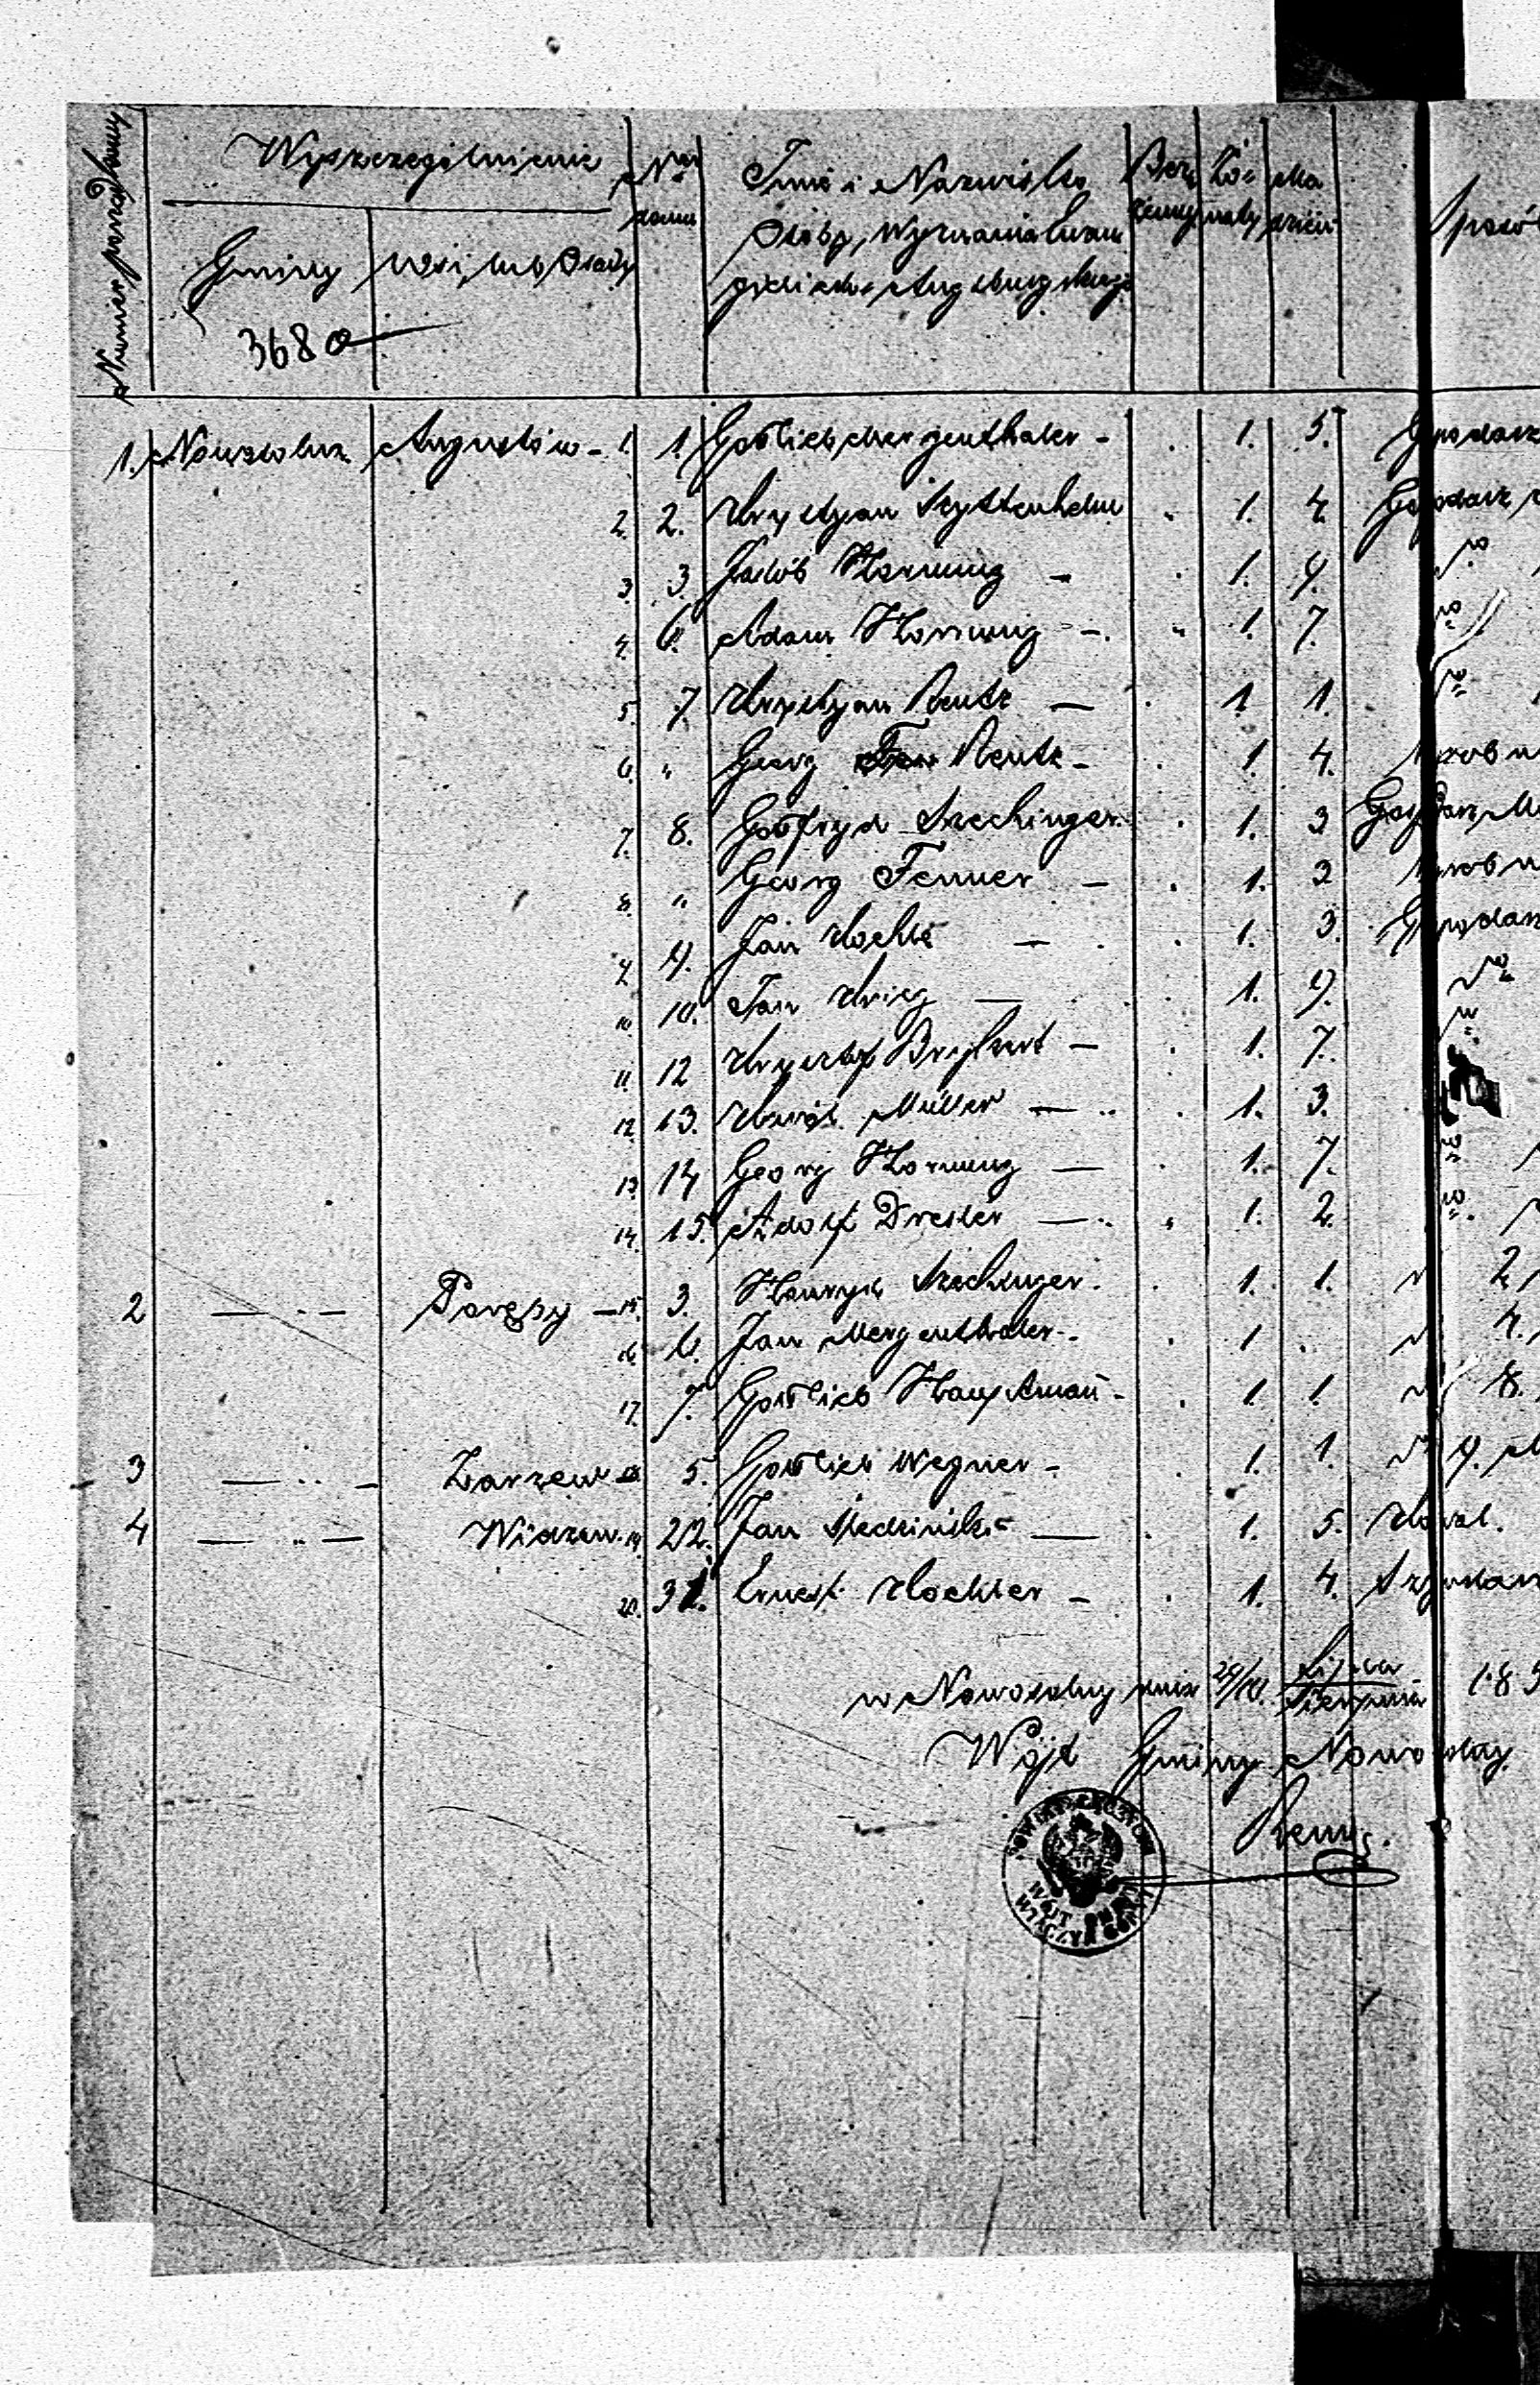 Numer porządkowy
Wyszczególnienie
Gminy
Wsi lub Osady
Nr domu
Imie i Nazwisko
Osoby, Wyznania Ewan
gielicko-Augsburgskiego
Bez
żenny
Żo=
naty
Ma
dzieci
Sposó
368
1. Nowosolna Augustów - 1. 1. Gottlieb Mergenthaler - 1. 5. Gospodarz
2. 2. Krystyan 1. 4. Gospodarz
3. 3. Jakób Hornung - 1. 4. do
4. 6. Adam Hornung - 1. 7. do
5. 7. Krystyan Rentz - 1. 1. do
6. " Georg Rentz - 1. 4. Wyrobn
7. 8. Gottfryd Szechinger 1. 3 Gospodarz
8. " Georg Fenner - 1. 2 Wyrobn
9. 9. Jan - 1. 3. Gospodarz
10 10. Jan Krieg - 1. 9. do
11. 12 Krysztof - 1. 7. do
12. 13. Müller - 1. 3.
13. 14 Georg Hornung - 1. 7. do
14. 15. Adolf Dresler - 1. 2. do
2 — „ — Poręby - 15. 3. Henryk Szechinger. 1. 1. 2
16. 6. Jan Mergenthaler - 1 . 4.
17. 7. Gottlieb Hauptman - 1. 1. 8.
3 — „ — Zarzew 18 5. Gottlieb Wegner - 1. 1. 9.
4 — „ — Widzew 19. 22. Jan — 1. 5. Kowal.
20. 31. Ernest Kochler - 1. 4.
w Nowosolny dnia 29/10. Lipca/Sierpnia 18
Wójt Gminy Nowosolny
WÓJT GMINY
WIĄCZYŃ